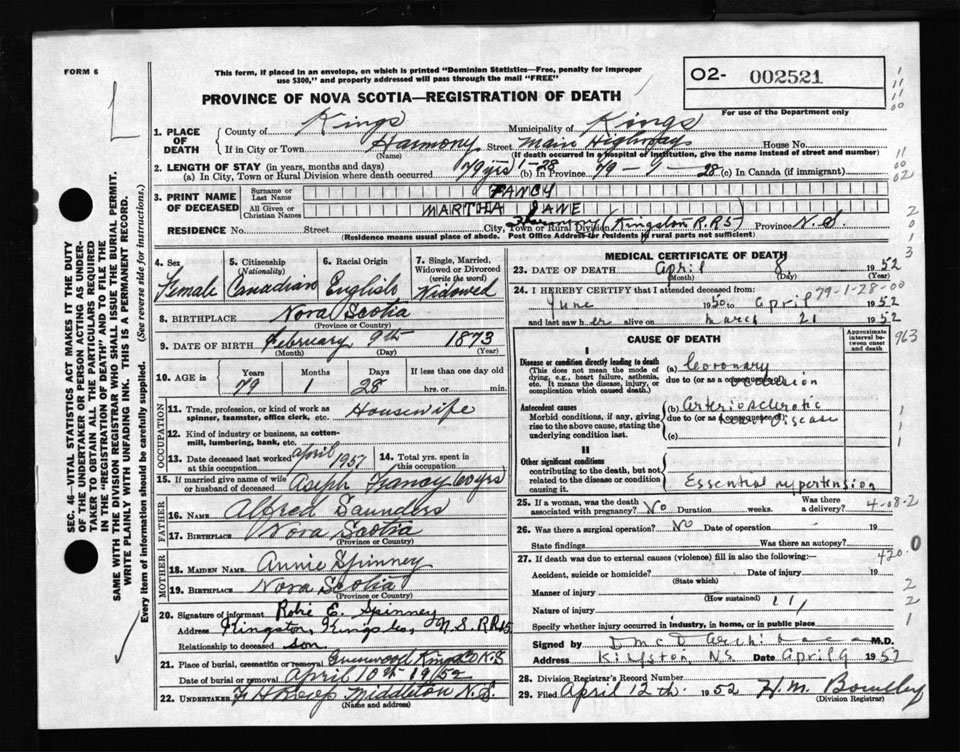 FORM 6
This form, if placed in an envelope, on which is printed "Dominion Statistics—Free, penalty for improper
use $300," and properly addressed will pass through the mail "FREE"
PROVINCE OF NOVA SCOTIA—REGISTRATION OF DEATH
O2- 002521
For use of the Department only
1. PLACE OF DEATH
County of Kings Municipality of Kings
If in City or Town Harmony Street Main Highway House No.
(Name) (If death occurred in a hospital or institution, give the name instead of street and number)
2. LENGTH OF STAY (in years, months and days)
(a) In City, Town or Rural Division where death occurred 79 yrs 1-28 (b) In Province 79-1-28 (c) In Canada (if immigrant)
3. PRINT NAME OF DECEASED
Surname or Last Name FANCY
All Given or Christian Names MARTHA JANE
RESIDENCE No. Street City, Town or Rural Division Harmony (Kingston R.R 5) Province N.S.
(Residence means usual place of abode. Post Office Address for residents of rural parts not sufficient)
4. Sex Female
5. Citizenship (Nationality) Canadian
6. Racial Origin English
7. Single, Married, Widowed or Divorced (write the word) Widowed
8. BIRTHPLACE Nova Scotia
(Province or Country)
9. DATE OF BIRTH February 9th 1873
(Month) (Day) (Year)
10. AGE in Years 79 Months 1 Days 28 If less than one day old hrs. or min.
OCCUPATION
11. Trade, profession, or kind of work as spinner, teamster, office clerk, etc. Housewife
12. Kind of industry or business, as cotton-mill, lumbering, bank, etc.
13. Date deceased last worked at this occupation April 1957
14. Total yrs. spent in this occupation 60 yrs
15. If married give name of wife or husband of deceased Aseph Fancy
FATHER
16. NAME Alfred Saunders
17. BIRTHPLACE Nova Scotia
(Province or Country)
MOTHER
18. MAIDEN NAME Annie Spinney
19. BIRTHPLACE Nova Scotia
(Province or Country)
20. Signature of informant Robie E. Spinney
Address Kingston, Kings Co, N.S. RR5
Relationship to deceased son
21. Place of burial, cremation or removal Greenwood Kings Co N.S
Date of burial or removal April 10th 1952
22. UNDERTAKER Middleton N.S.
(Name and address)
MEDICAL CERTIFICATE OF DEATH
23. DATE OF DEATH April 8 1952
(Month) (Day)
79-1-28-00
24. I HEREBY CERTIFY that I attended deceased from:
June 1950 to April 1952
and last saw her alive on March 21 1952
CAUSE OF DEATH
Approximate interval between onset and death
963
I
Disease or condition directly leading to death
(This does not mean the mode of dying, e.g., heart failure, asthenia, etc. It means the disease, injury, or complication which caused death.)
(a) Coronary occlusion
due to (or as a consequence of)
Antecedent causes
Morbid conditions, if any, giving rise to the above cause, stating the underlying condition last.
(b) Arteriosclerotic heart Disease
due to (or as a consequence of)
(c)
II
Other significant conditions
contributing to the death, but not related to the disease or condition causing it.
Essential hypertension
25. If a woman, was the death associated with pregnancy? No Duration weeks. Was there a delivery?
4-08-2
26. Was there a surgical operation? No Date of operation 19
State findings Was there an autopsy?
420-0
27. If death was due to external causes (violence) fill in also the following:—
Accident, suicide or homicide? Date of injury 19
(State which)
Manner of injury
(How sustained)
Nature of injury
Specify whether injury occurred in industry, in home, or in public place
Signed by M.D.
Address Kingston, NS Date April 9 1952
28. Division Registrar's Record Number
29. Filed April 12th 1952 H.M.
(Division Registrar)
SEC. 46—VITAL STATISTICS ACT MAKES IT THE DUTY
OF THE UNDERTAKER OR PERSON ACTING AS UNDER-
TAKER TO OBTAIN ALL THE PARTICULARS REQUIRED
IN THE "REGISTRATION OF DEATH" AND TO FILE THE
SAME WITH THE DIVISION REGISTRAR WHO SHALL ISSUE THE BURIAL PERMIT.
WRITE PLAINLY WITH UNFADING INK. THIS IS A PERMANENT RECORD.
Every item of information should be carefully supplied. (See reverse side for instructions.)